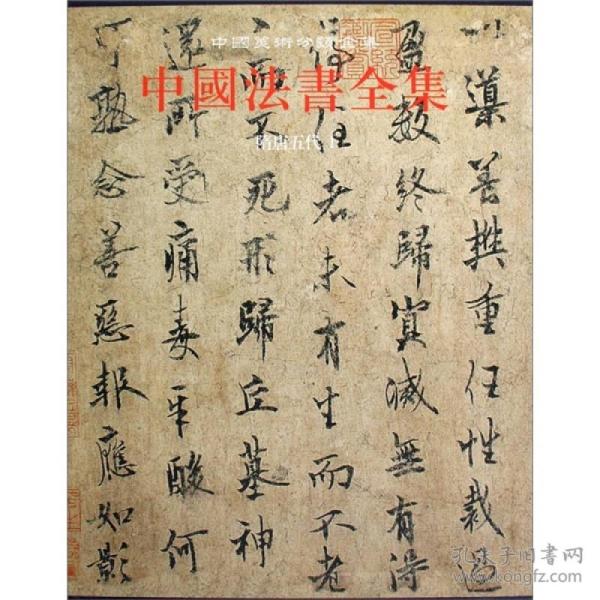 中國美術分類全集
中國法書全集
隋唐五代 1
導養樊重任性裁過
盈數終歸冥滅無有得
停住者未有生而不老
老而不死形歸丘墓神
還所受痛毒辛酸何
可熟念善惡報應如影
孔夫子旧书网
www.kongfz.com